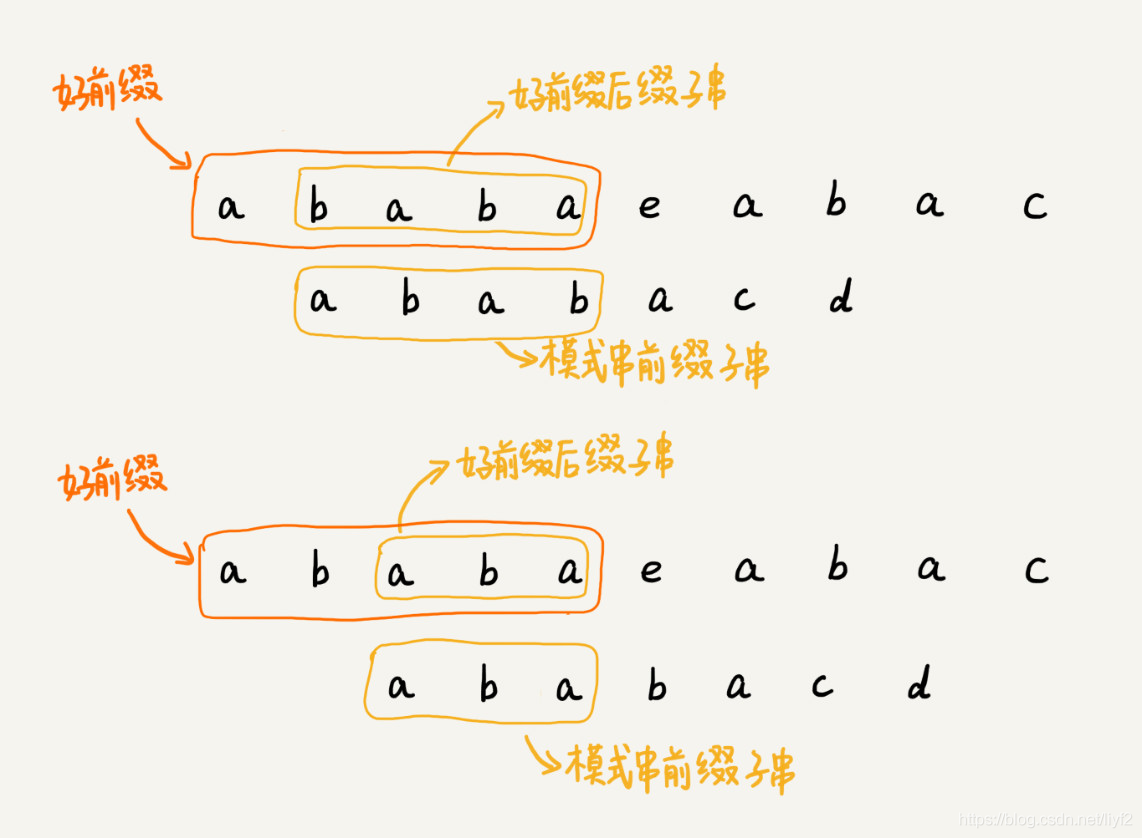 好前缀
好前缀后缀子串
a b a b a e a b a c
a b a b a c d
模式串前缀子串
好前缀后缀子串
好前缀
a b a b a e a b a c
a b a b a c d
模式串前缀子串
https://blog.csdn.net/liyi2